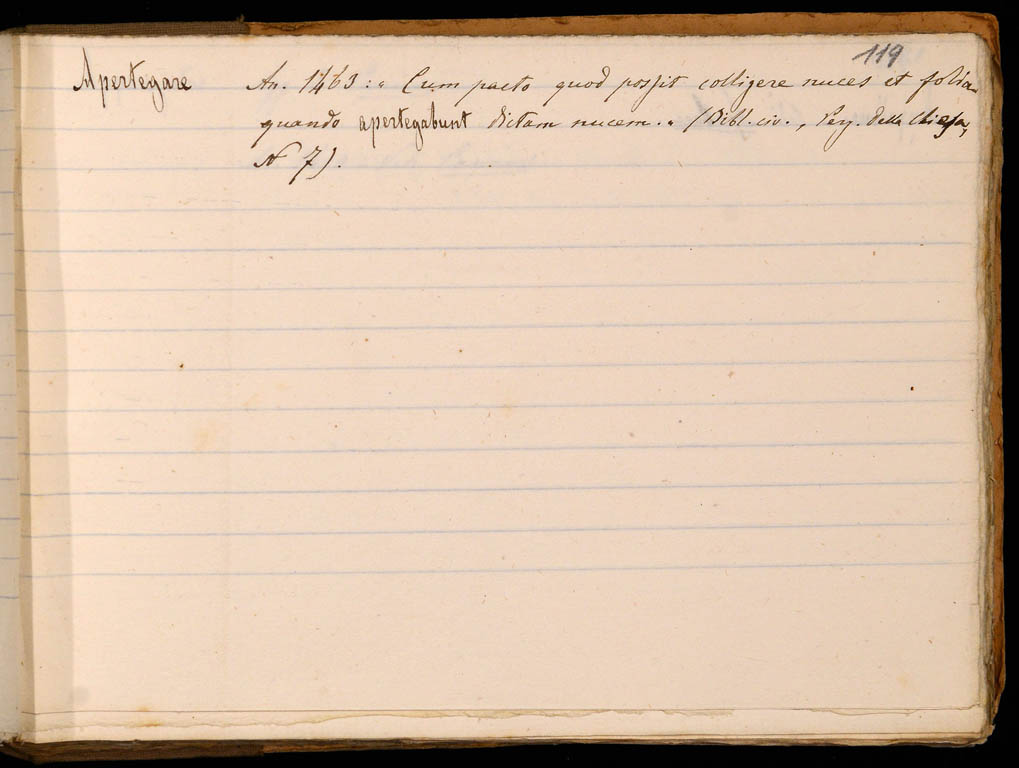 119
Apertegare An. 1463: " Cum pacto quod possit colligere nuces et folia
quando apertegabunt dictam nucem. " (Bibl. civ., Perg. della Chiesa,
N 7).